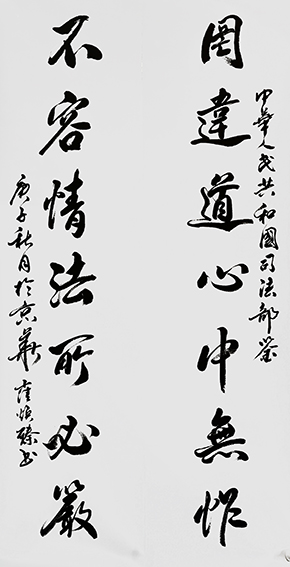 中華人民共和國司法部鑒
罔違道心中無怍
不容情法所必嚴
庚子秋月於京華崔書